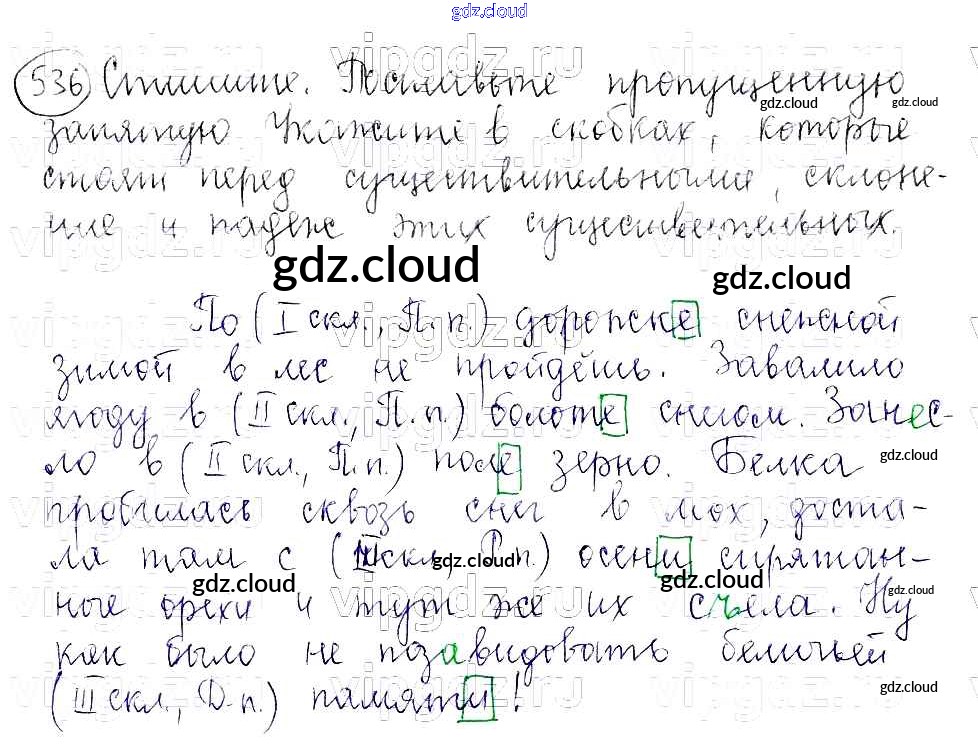 gdz.cloud
536 Спишите. Поставьте пропущенную
gdz.cloud
запятую Укажите в скобках, которые
стоят перед существительными, склоне-
ние и падеж этих существительных.
gdz.cloud
gdz.cloud
По (I скл., П. п.) дорожке снежной
зимой в лес не пройдёшь. Завалило
ягоду в (II скл., П. п.) болоте снегом. Занес-
gdz.cloud
ло в (II скл., П. п.) поле зерно. Белка
gdz.cloud
пробилась сквозь снег в мох, доста-
ла там с (III скл., Р. п.) осени спрятан-
gdz.cloud
gdz.cloud
gdz.cloud
gdz.cloud
ные орехи и тут же их съела. Ну
как было не позавидовать беличьей
(III скл., Д. п.) памяти!
gdz.cloud